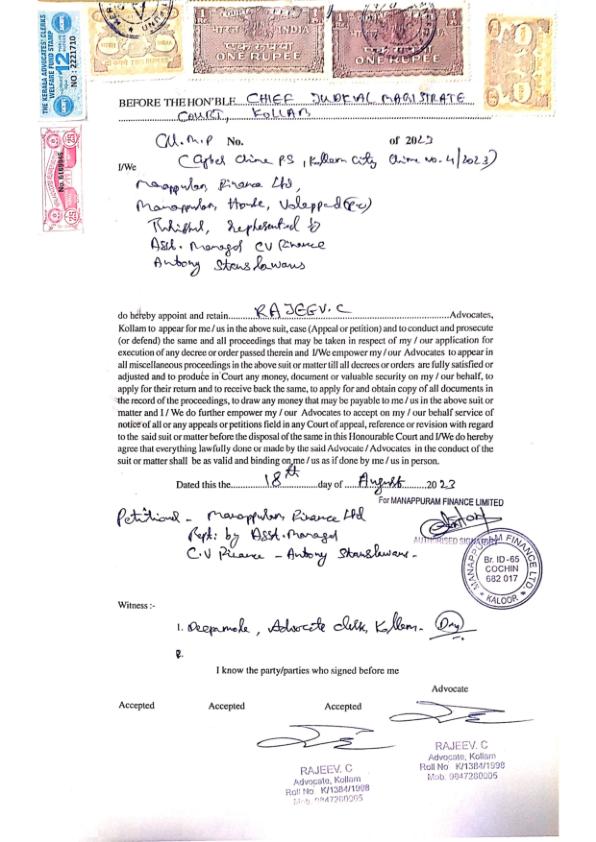 THE KERALA ADVOCATES' CLERKS
WELFARE FUND STAMP
12
NO : 2221710
भारत INDIA
एक रुपया
ONE RUPEE
भारत INDIA
एक रुपया
ONE RUPEE
25
BEFORE THE HON'BLE CHIEF JUDICIAL MAGISTRATE
COURT, KOLLAM
No. of 2023
PS, Kollam City Crime No. 4/2023)
I/We
Manappuram Finance Ltd,
Manappuram House, Valappad (P.O)
Represented by
Asst. Manager CV Finance
Antony Stanslawans
do hereby appoint and retain RAJEEV. C Advocates,
Kollam to appear for me / us in the above suit, case (Appeal or petition) and to conduct and prosecute
(or defend) the same and all proceedings that may be taken in respect of my / our application for
execution of any decree or order passed therein and I/We empower my / our Advocates to appear in
all miscellaneous proceedings in the above suit or matter till all decrees or orders are fully satisfied or
adjusted and to produce in Court any money, document or valuable security on my / our behalf, to
apply for their return and to receive back the same, to apply for and obtain copy of all documents in
the record of the proceedings, to draw any money that may be payable to me / us in the above suit or
matter and I / We do further empower my / our Advocates to accept on my / our behalf service of
notice of all or any appeals or petitions field in any Court of appeal, reference or revision with regard
to the said suit or matter before the disposal of the same in this Honourable Court and I/We do hereby
agree that everything lawfully done or made by the said Advocate / Advocates in the conduct of the
suit or matter shall be as valid and binding on me / us as if done by me / us in person.
Dated this the 18th day of August 2023
For MANAPPURAM FINANCE LIMITED
Petitioner - Manappuram Finance Ltd
Rept: by Asst. Manager
C.V Finance - Antony Stanslawans -
AUTHORISED SIGNATORY
MANAPPURAM FINANCE LTD.
Br. ID-65
COCHIN
682 017
KALOOR
Witness :-
1. Deepamole, Advocate clerk, Kollam.
2.
I know the party/parties who signed before me
Advocate
Accepted Accepted Accepted
RAJEEV. C
Advocate, Kollam
Roll No K/1384/1998
Mob. 9847260005
RAJEEV. C
Advocate, Kollam
Roll No K/1384/1998
Mob. 9847260005